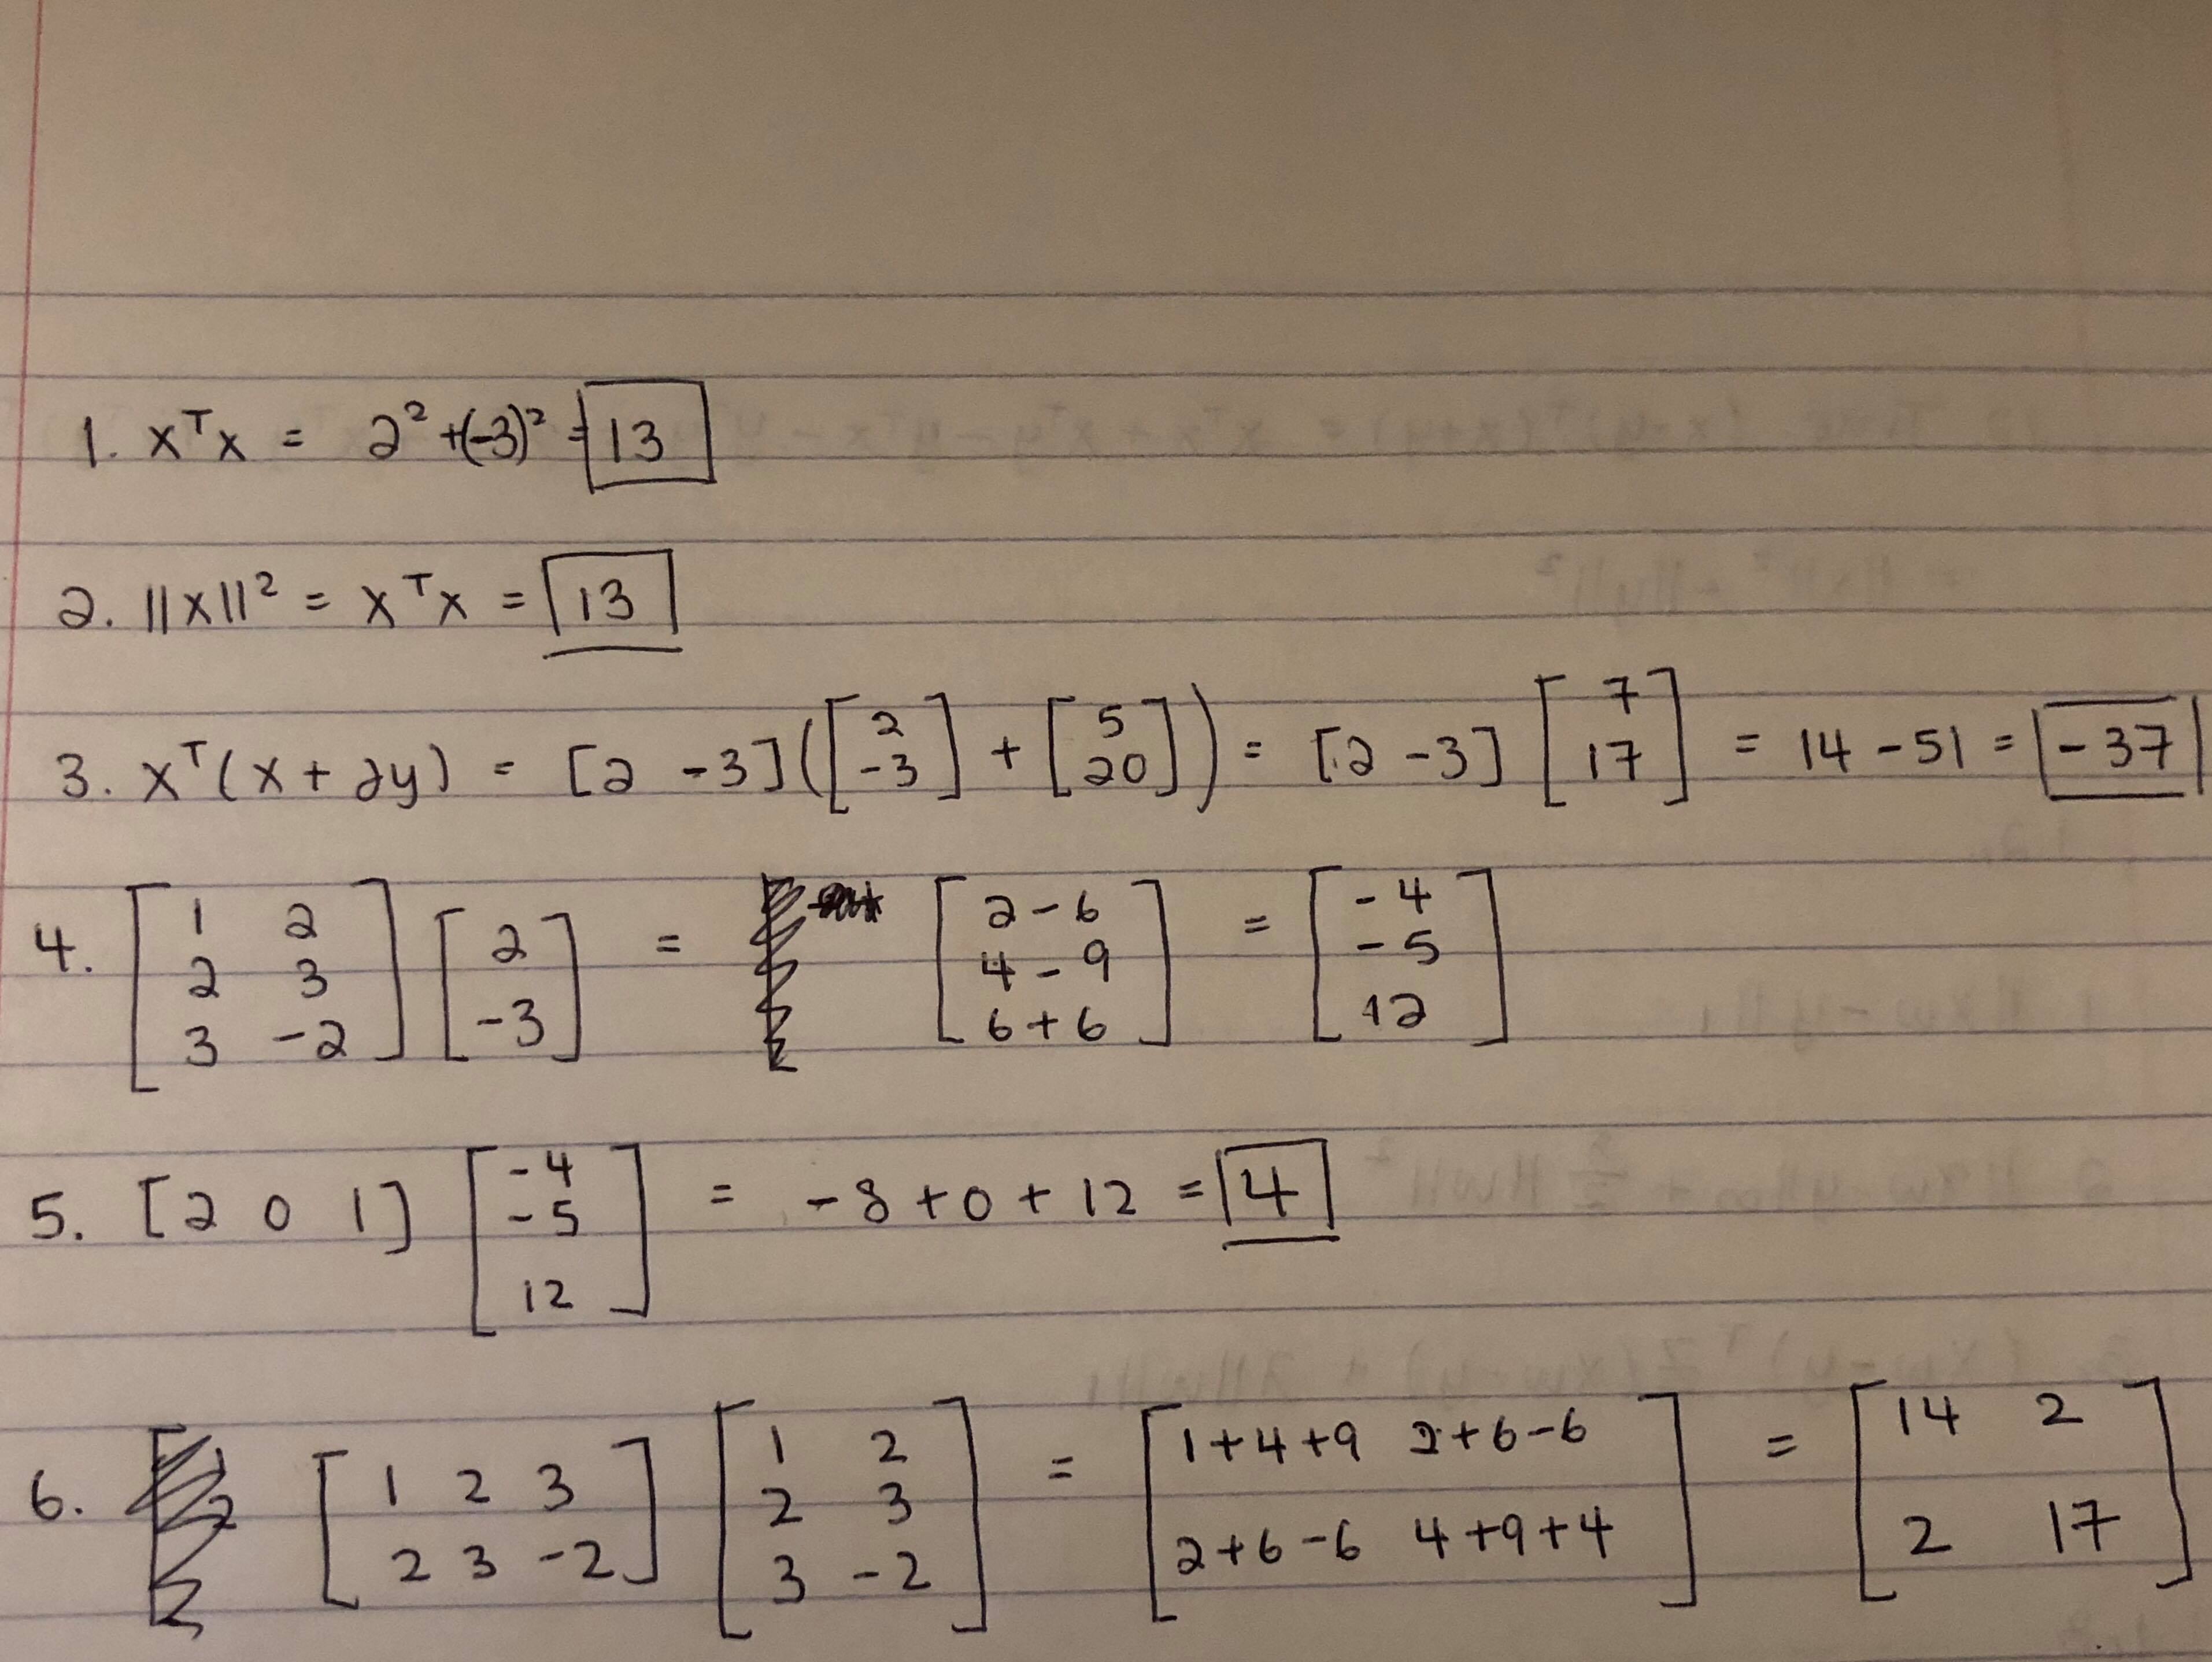 1. xᵀx = 2² + (-3)² = 13
2. ||x||² = xᵀx = 13
3. xᵀ(x + 2y) = [2 -3]([2 -3] + [5 20]) = [2 -3][7 17] = 14 - 51 = -37
4. [1 2
2 3
3 -2] [2
-3] = [2 - 6
4 - 9
6 + 6] = [-4
-5
12]
5. [2 0 1] [-4
-5
12] = -8 + 0 + 12 = 4
6. [1 2 3
2 3 -2] [1 2
2 3
3 -2] = [1+4+9 2+6-6
2+6-6 4+9+4] = [14 2
2 17]